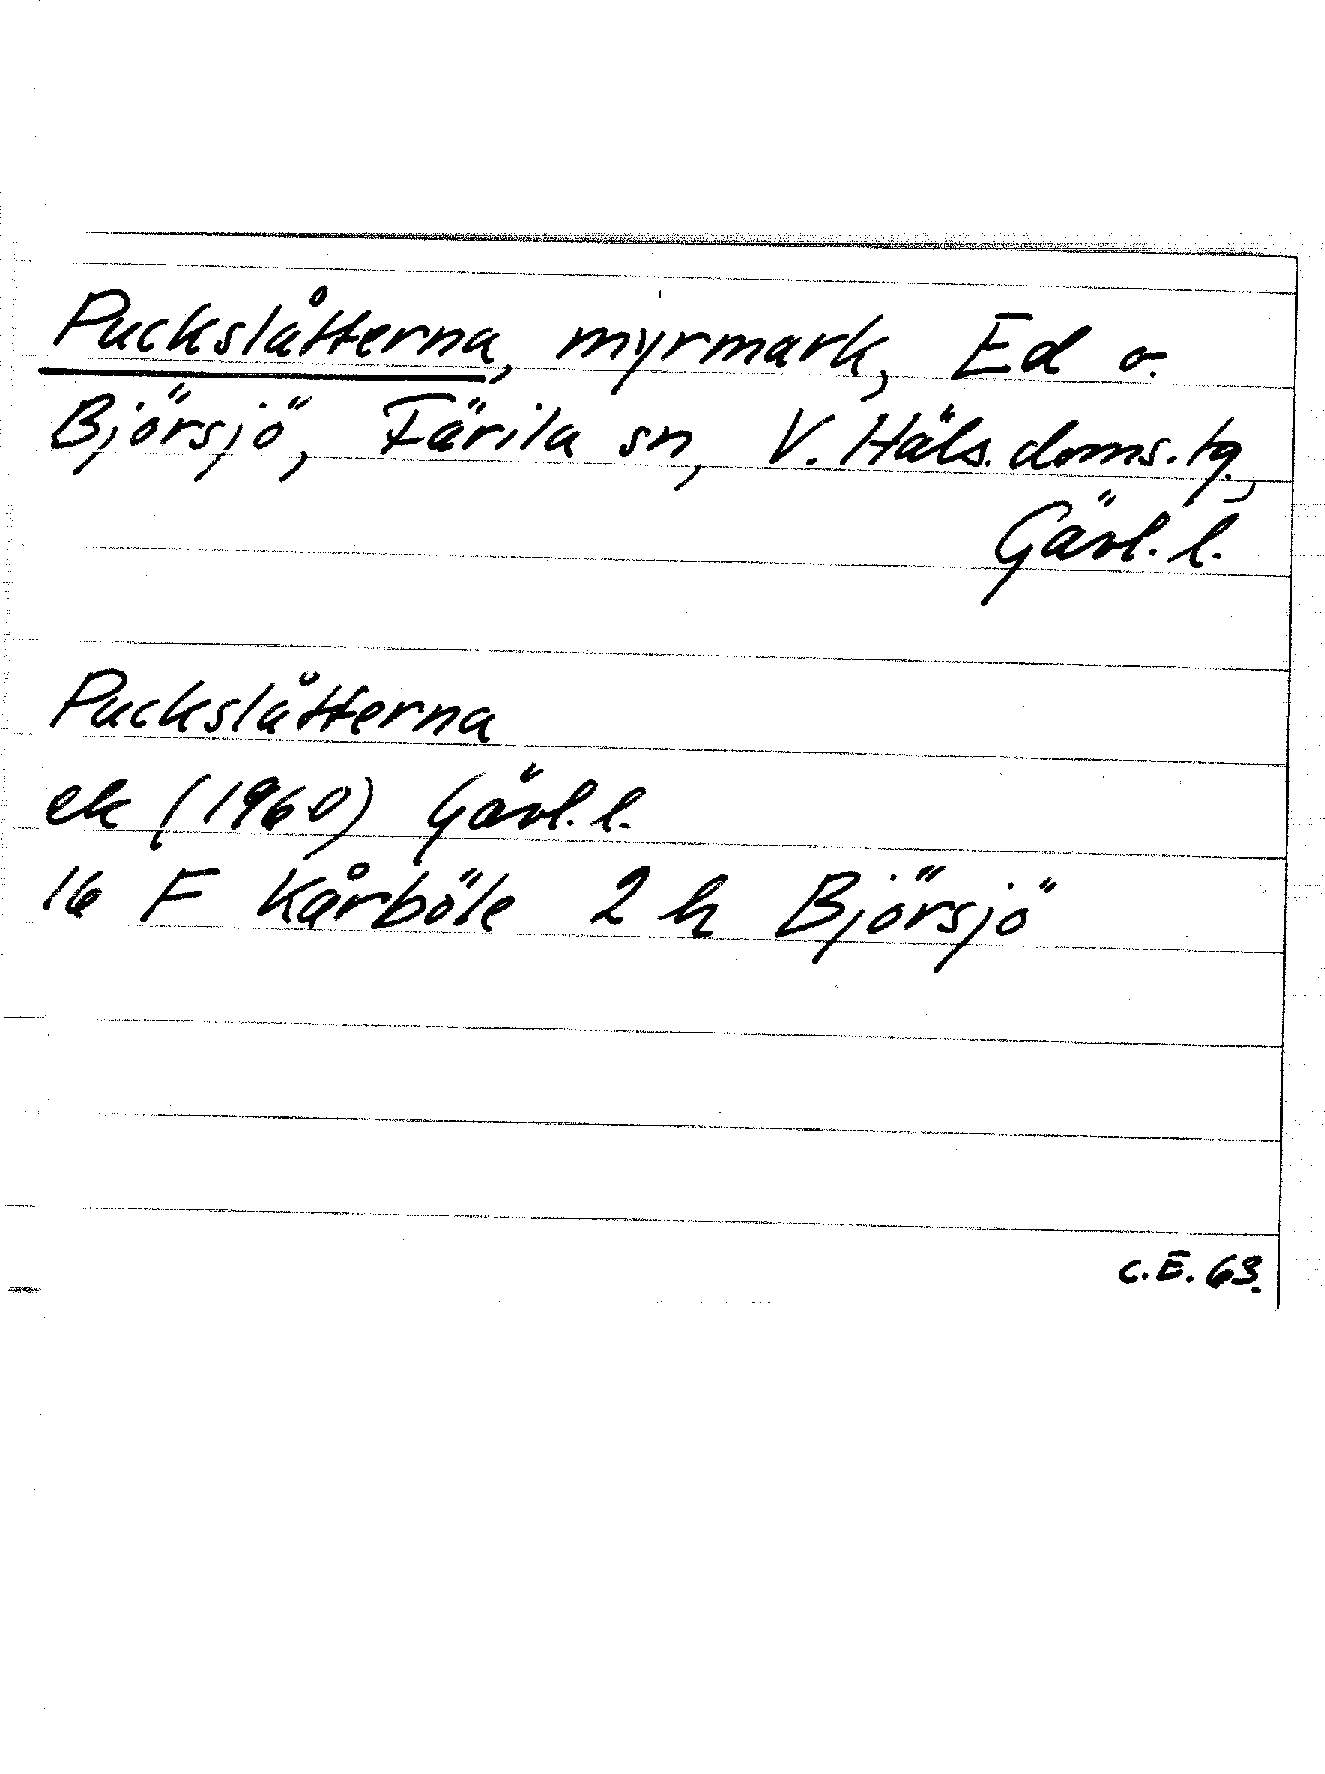 Puckslåtterna, myrmark, Ed o.
Björsjö, Färila sn, V. Häls. doms. tg.,
Gävl. l.
Puckslåtterna
ek (1960) Gävl. l.
16 F Kårböle 2 h Björsjö
C. E. 63.